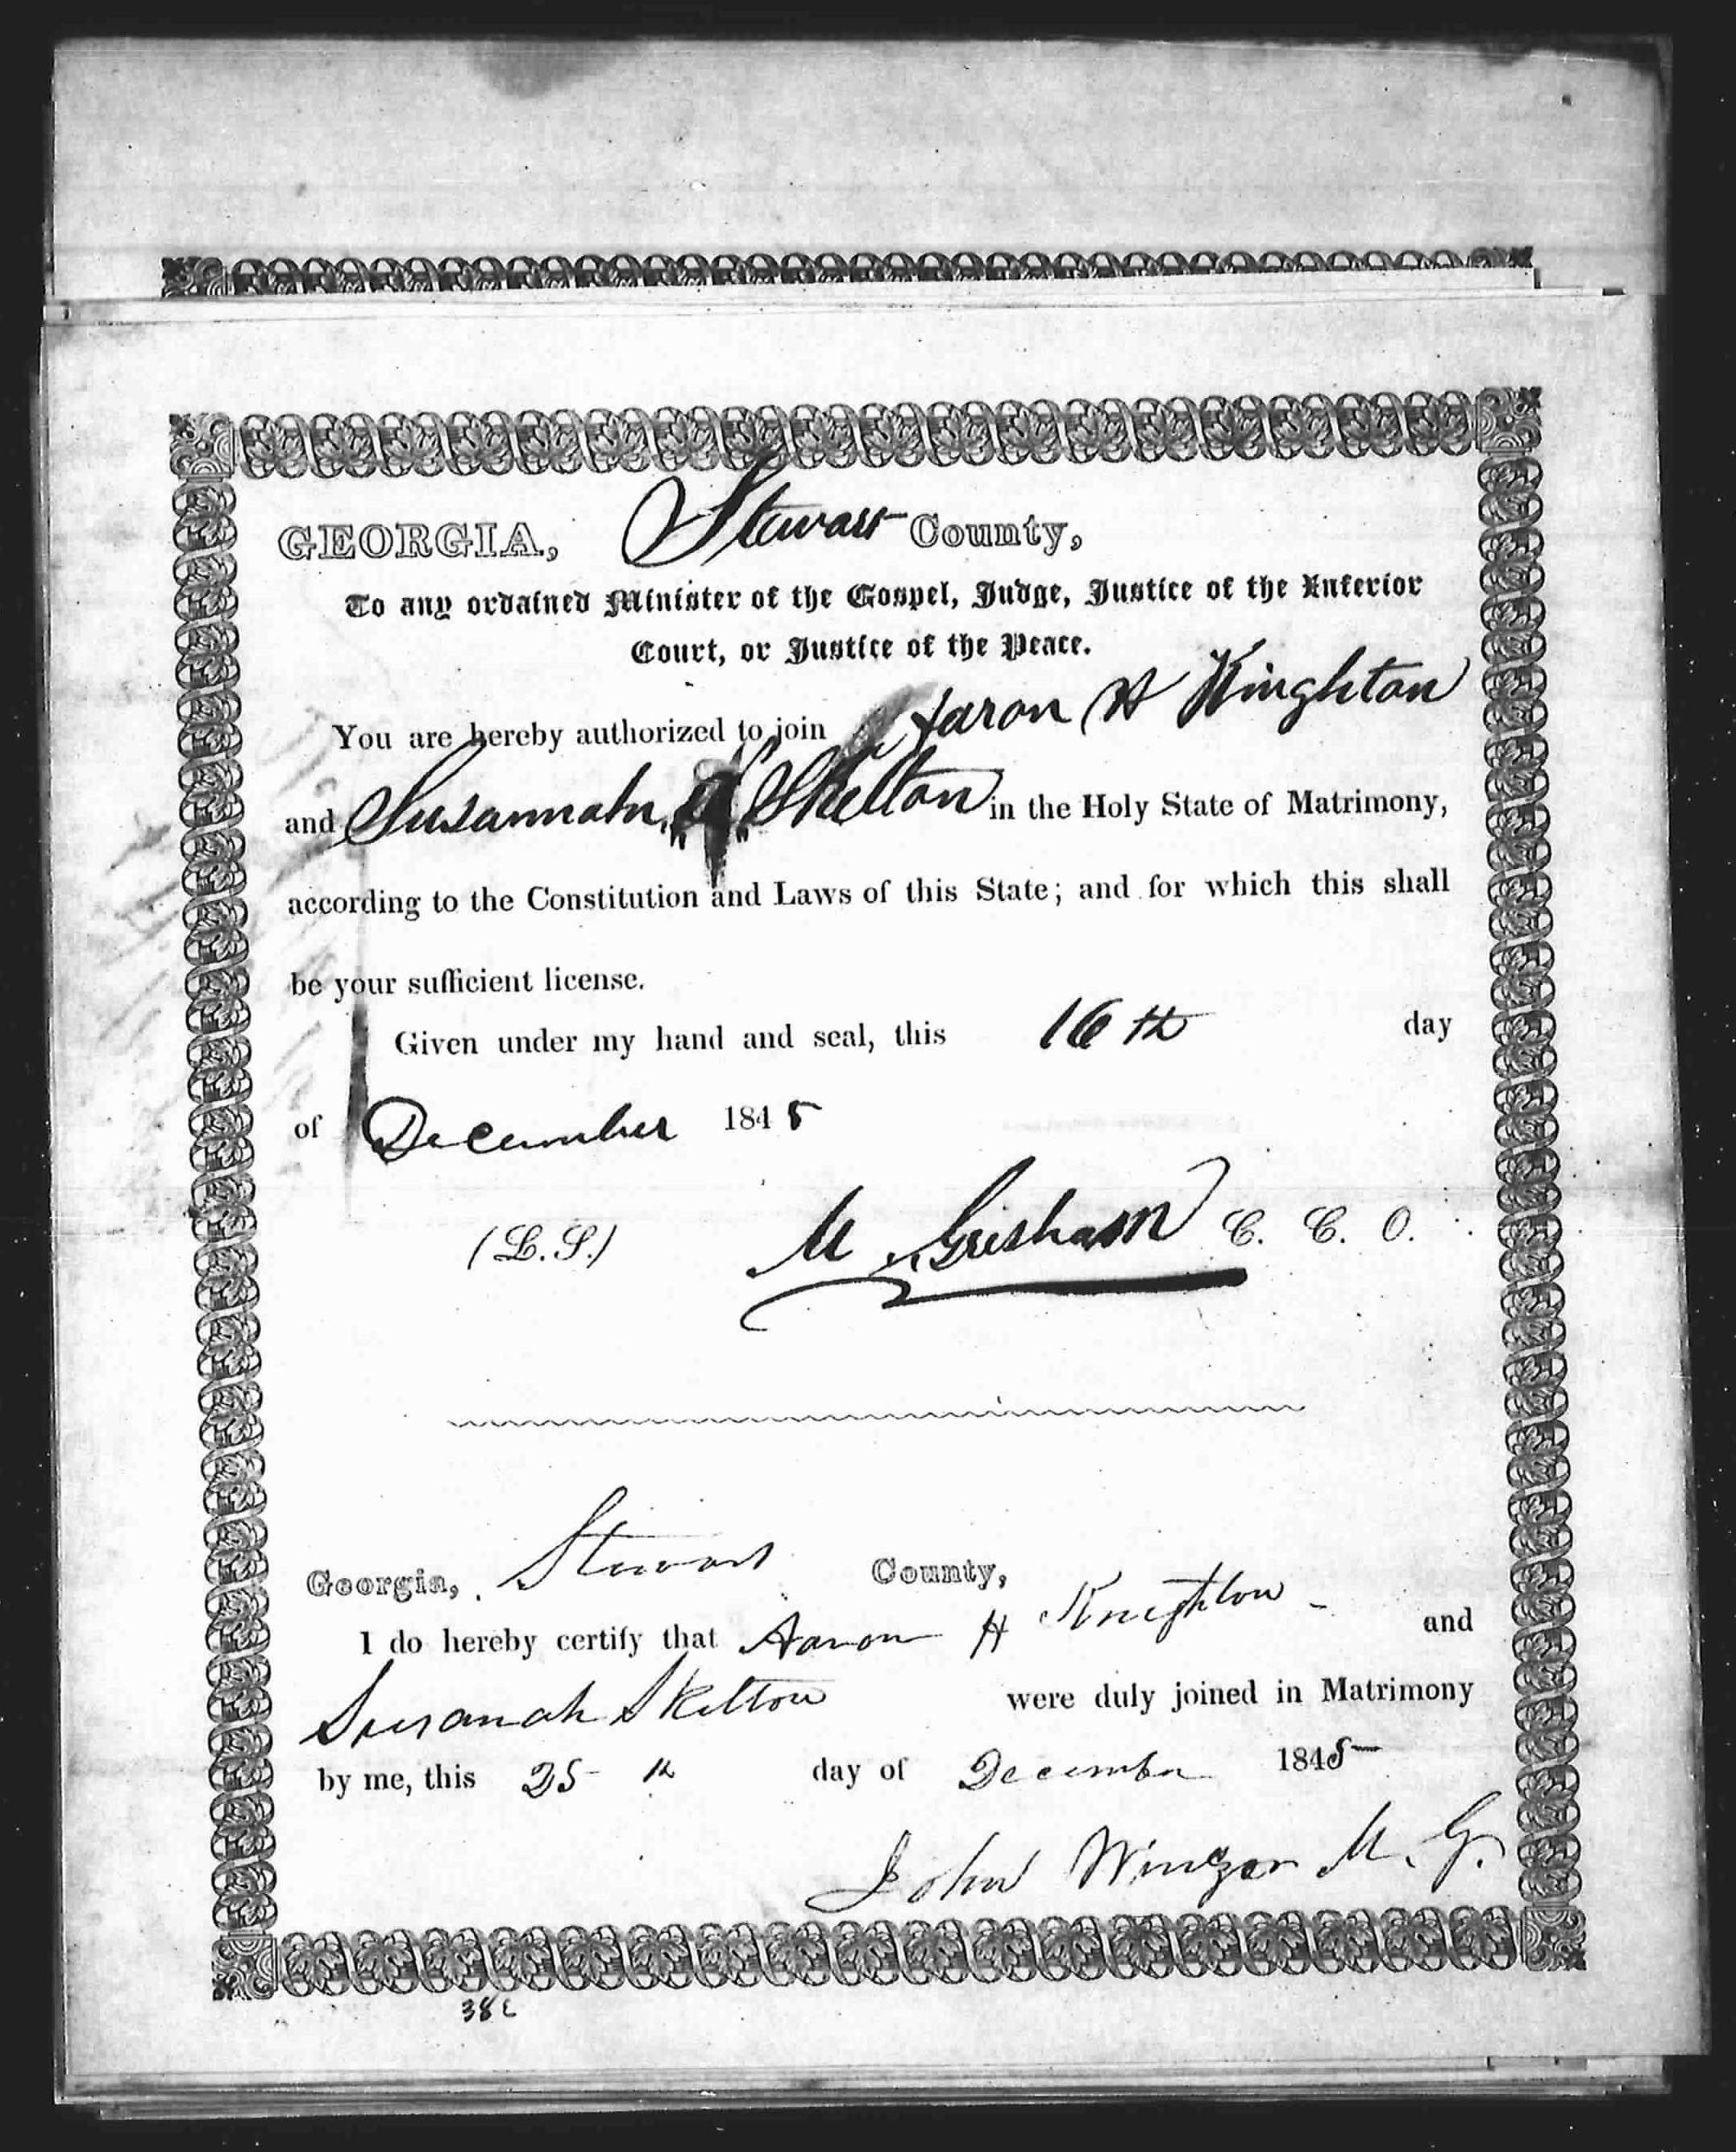 GEORGIA, Stewart County,
To any ordained Minister of the Gospel, Judge, Justice of the Inferior
Court, or Justice of the Peace.
You are hereby authorized to join Aaron H Kinghton
and Susannah Skelton in the Holy State of Matrimony,
according to the Constitution and Laws of this State; and for which this shall
be your sufficient license.
Given under my hand and seal, this 16th day
of December 1845
(L.S.) M Grisham C. C. O.
Georgia, Stewart County,
I do hereby certify that Aaron H Knighton and
Susanah Skelton were duly joined in Matrimony
by me, this 25th day of December 1845
John M. G.